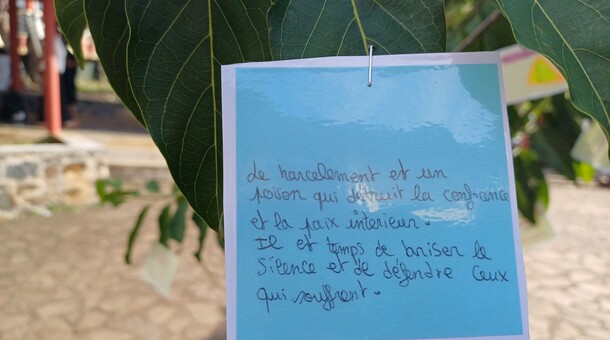 Le harcelement et un
poison qui détruit la confiance
et la paix intérieur.
Il et temps de briser le
silence et de défendre ceux
qui souffrent.